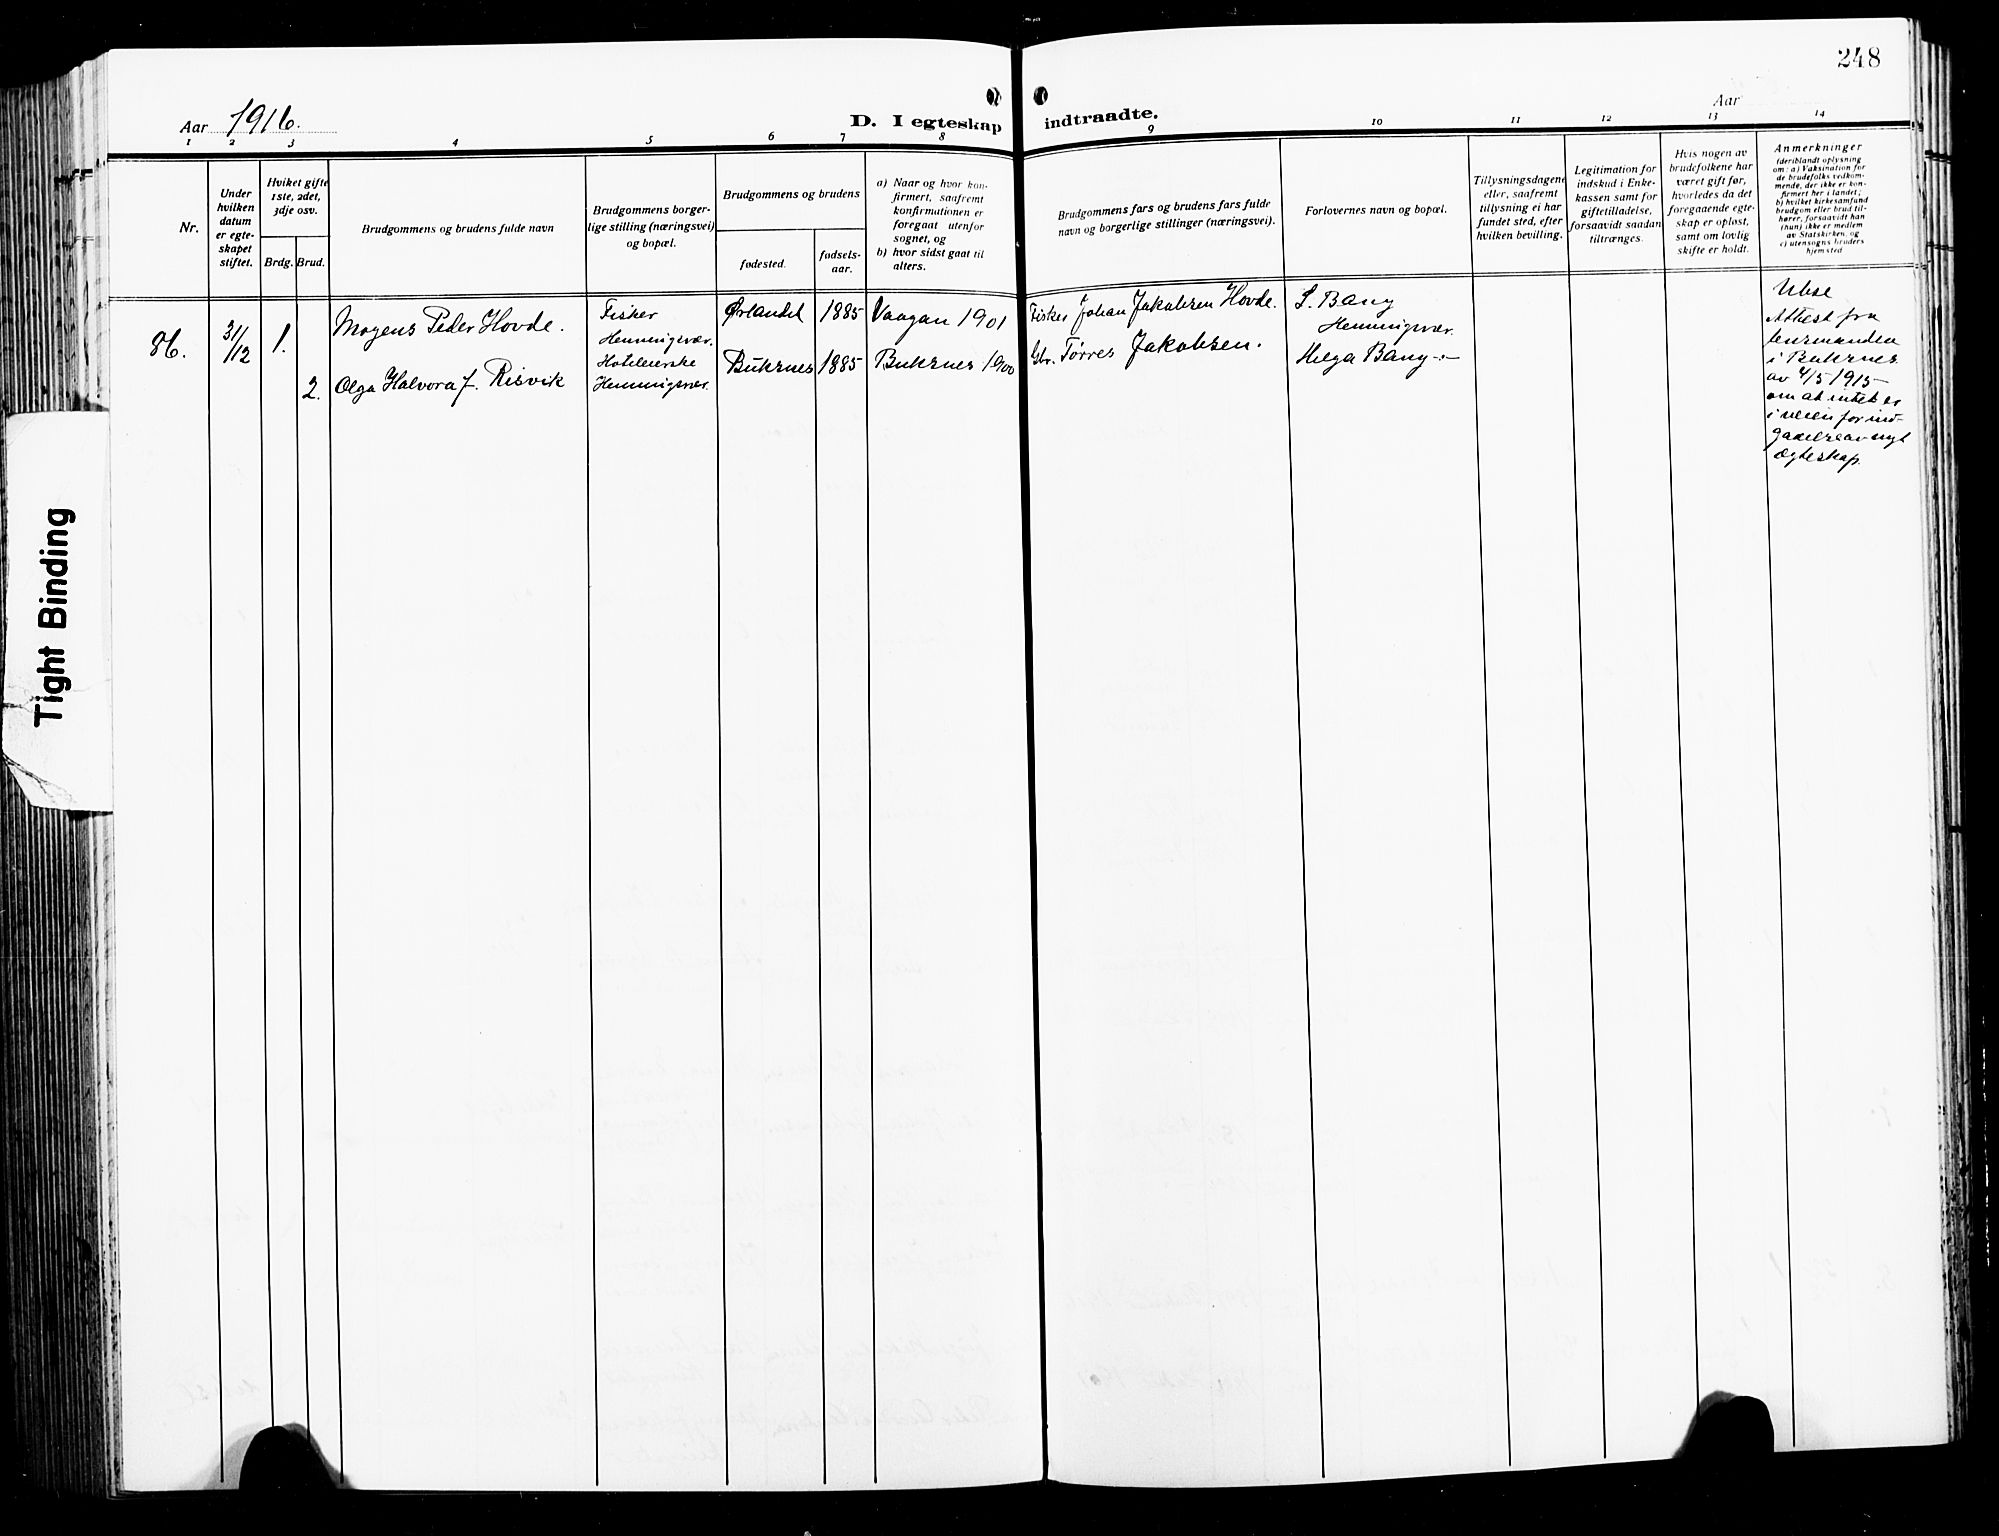 248
Aar 1916.
D. I egteskap indtraadte.
Aar
1 2 3 4 5 6 7 8 9 10 11 12 13 14
Nr.
Under
hvilken
datum
er egte-
skapet
stiftet.
Hviket gifte
1ste, 2det,
3dje osv.
Brdg. Brud.
Brudgommens og brudens fulde navn
Brudgommens borger-
lige stilling (næringsvei)
og bopæl.
Brudgommens og brudens
fødested.
fødsels-
aar.
a) Naar og hvor kon-
firmert, saafremt
konfirmationen er
foregaat utenfor
sognet, og
b) hvor sidst gaat til
alters.
Brudgommens fars og brudens fars fulde
navn og borgerlige stillinger (næringsvei).
Forlovernes navn og bopæl.
Tillysningsdagene
eller, saafremt
tillysning ei har
fundet sted, efter
hvilken bevilling.
Legitimation for
indskud i Enke-
kassen samt for
giftetilladelse,
forsaavidt saadan
tiltrænges.
Hvis nogen av
brudefolkene har
været gift før,
hvorledes da det
foregaaende egte-
skap er opløst,
samt om lovlig
skifte er holdt.
Anmerkninger
(deriblandt oplysning
om: a) Vaksination for
de brudefolks vedkom-
mende, der ikke er kon-
firmert her i landet;
b) hvilket kirkesamfund
brudgom eller brud til-
hører, forsaavidt han
(hun) ikke er medlem
av Statskirken, og
c) utensogns bruders
hjemsted
86.
31/12
1.
Mogens Peder Hovde.
Fisker
Henningsvær.
Ørlandet
1885
Vaagan 1901
Fisker Johan Jakobsen Hovde.
S. Bang
Henningsvær.
2.
Olga Halvora f. Risvik
Hoteleierske
Henningsvær.
Buksnes
1885
Buksnes 1900
Gbr. Tørres Jakobsen.
Helga Bang -"-
Attest fra
lensmanden
i Buksnes
av 4/5 1915
om at intet er
i veien for ind-
gaaelse av nyt
ægteskap.
Tight Binding